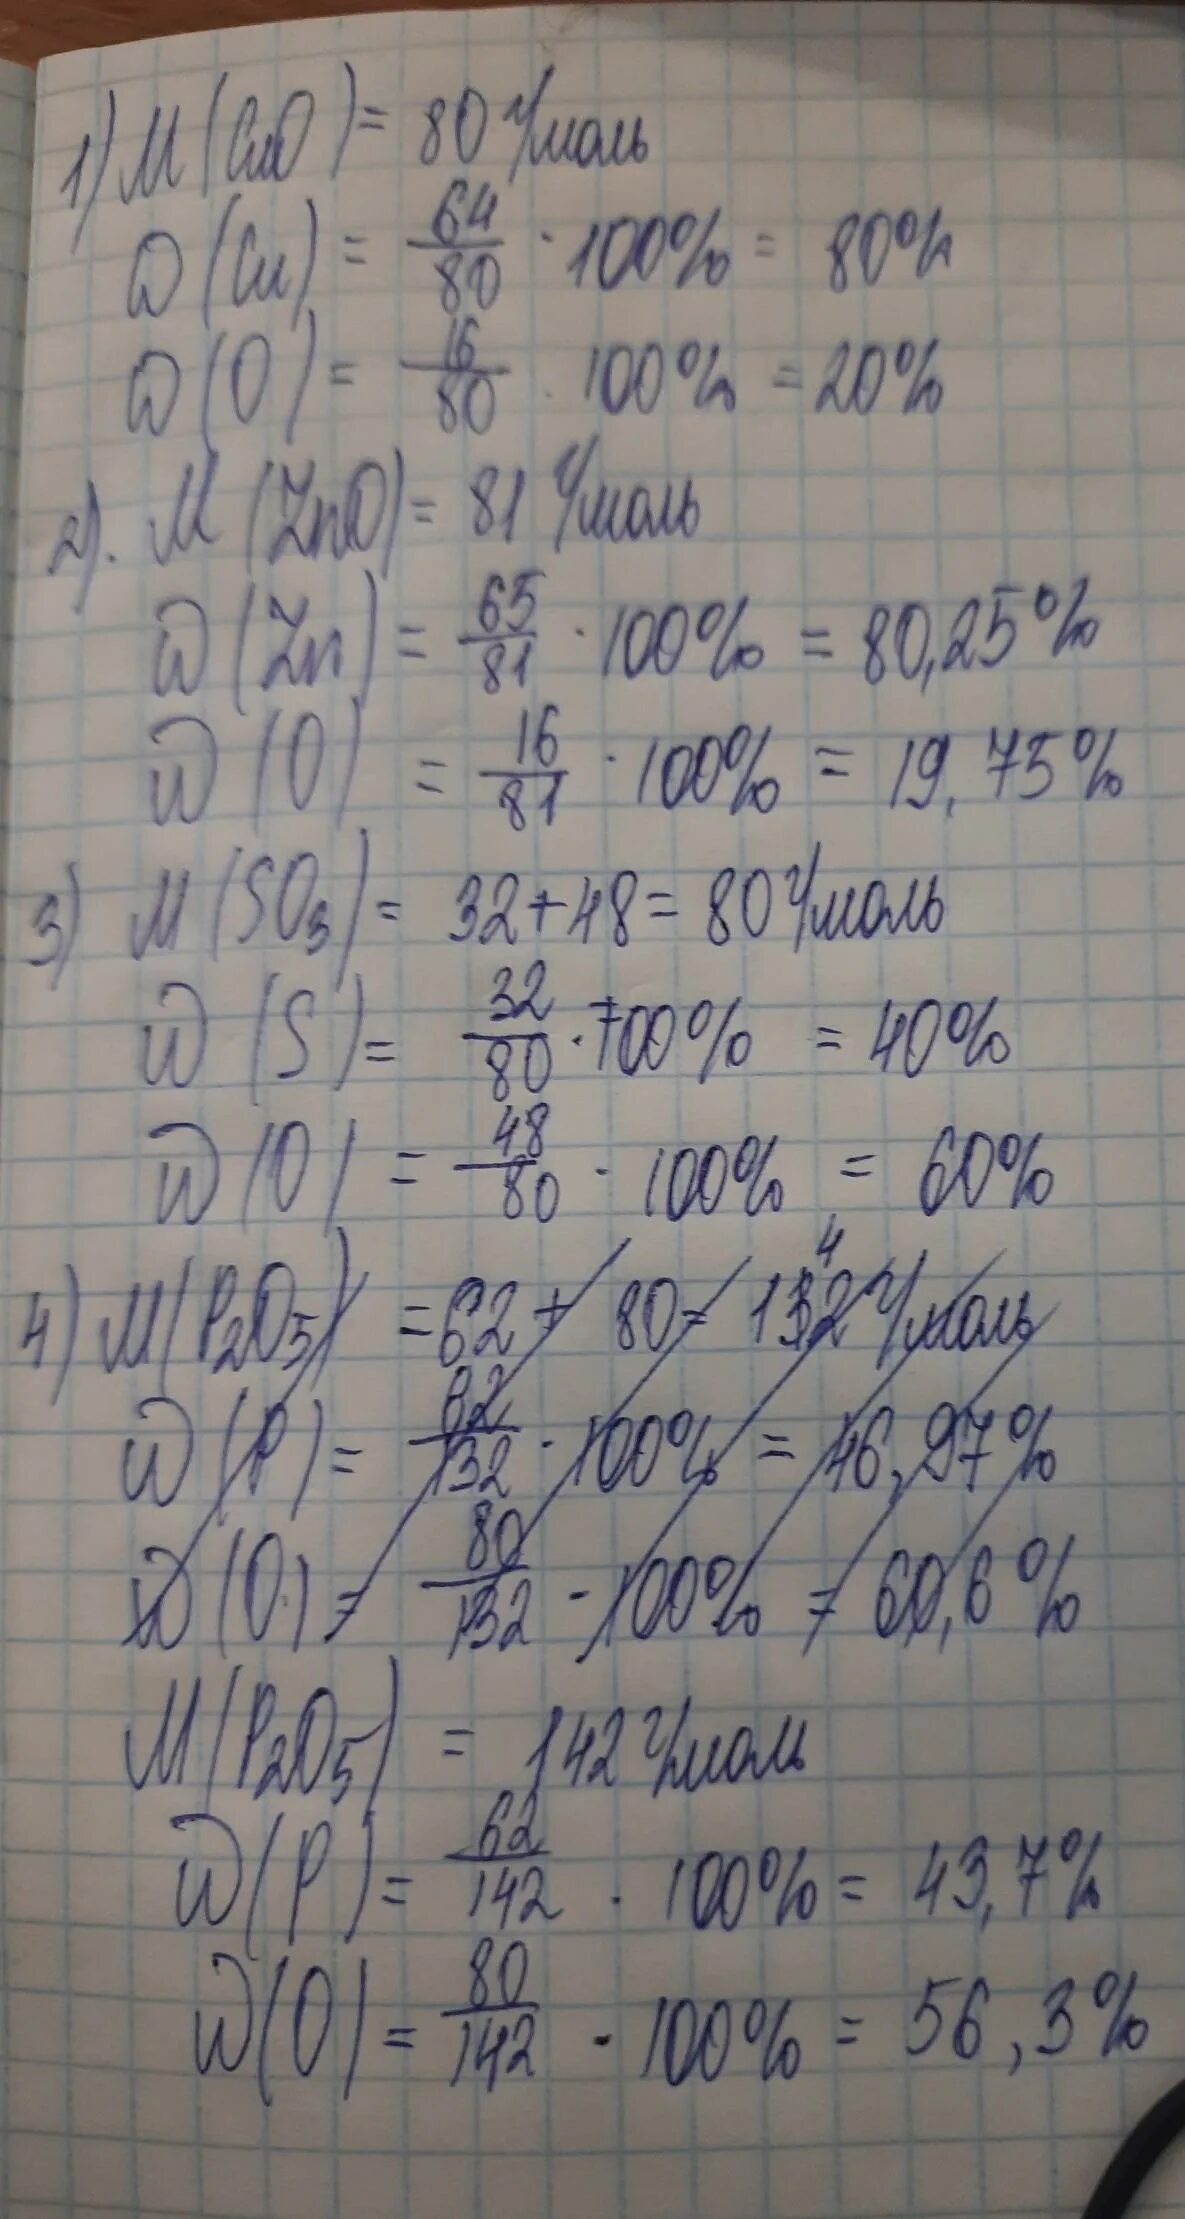 1) M(CuO) = 80 г/моль
ω(Cu) = 64/80 · 100% = 80%
ω(O) = 16/80 · 100% = 20%
2). M(ZnO) = 81 г/моль
ω(Zn) = 65/81 · 100% = 80,25%
ω(O) = 16/81 · 100% = 19,75%
3) M(SO₃) = 32+48 = 80 г/моль
ω(S) = 32/80 · 100% = 40%
ω(O) = 48/80 · 100% = 60%
4
4) M(P₂O₅) = 62 + 80 = 132 г/моль
ω(P) = 62/132 · 100% = 46,97%
ω(O) = 80/132 · 100% = 60,6%
M(P₂O₅) = 142 г/моль
ω(P) = 62/142 · 100% = 43,7%
ω(O) = 80/142 · 100% = 56,3%